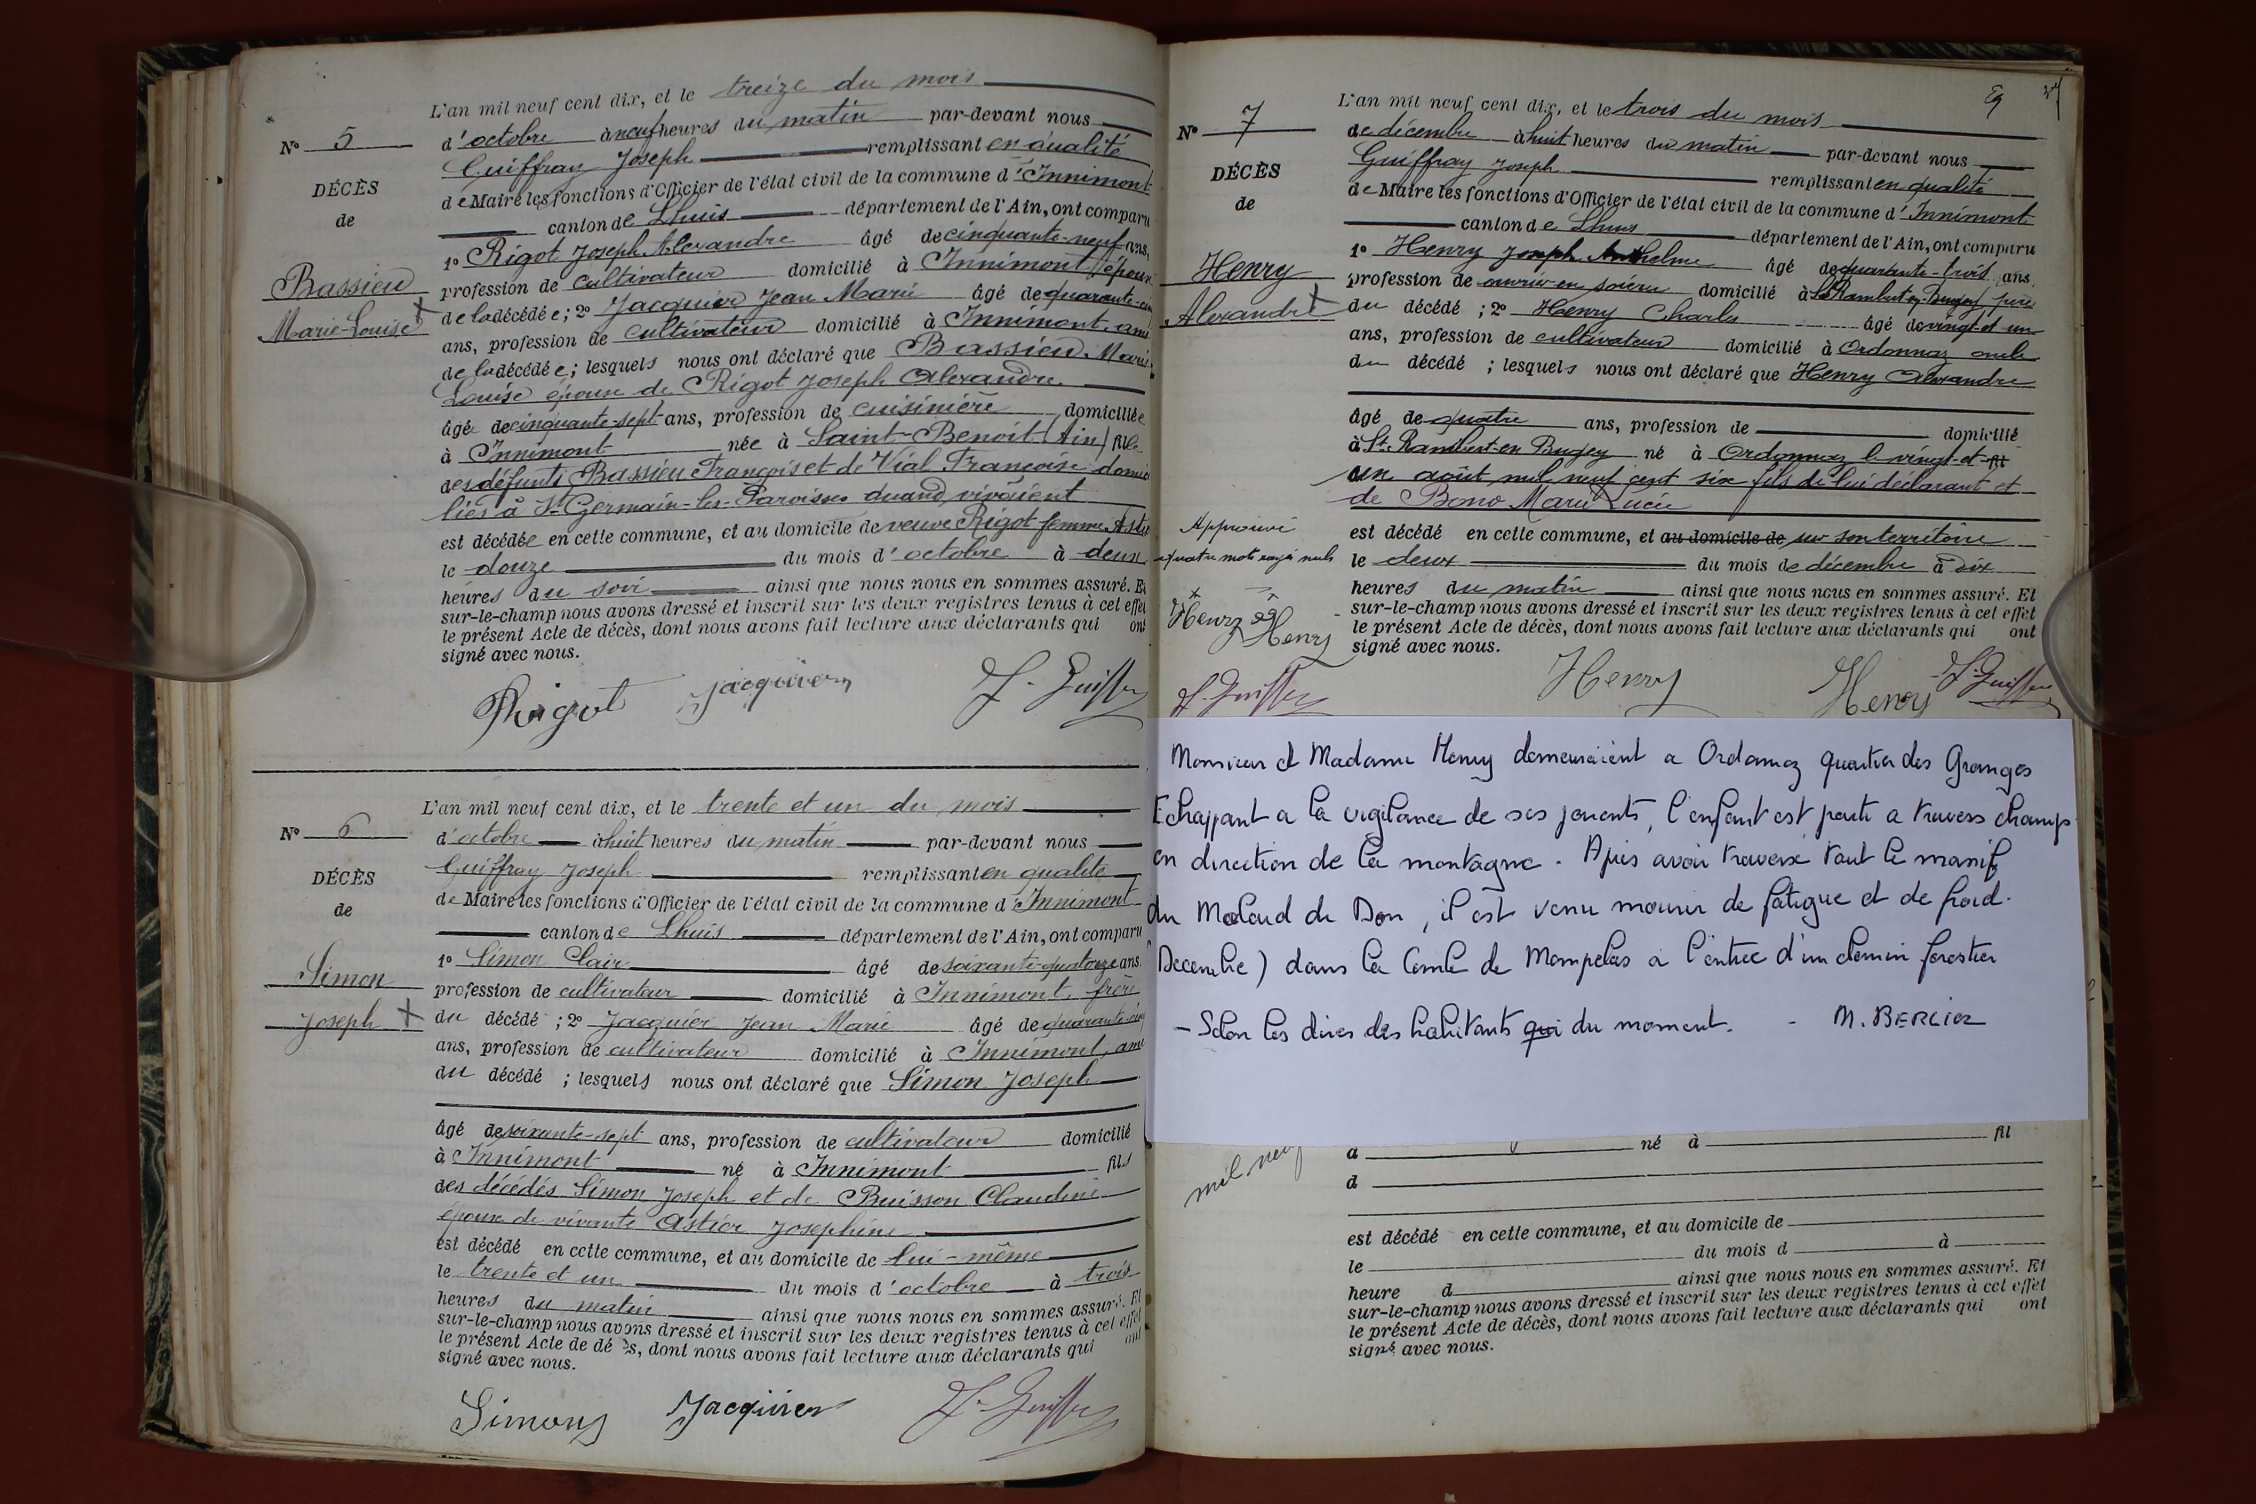 L'an mil neuf cent dix, et le treize du mois
No 5
d'octobre à neuf heures du matin par-devant nous
Guiffray Joseph remplissant en qualité
DÉCÈS
de Maire les fonctions d'Officier de l'état civil de la commune d'Innimont
de
canton de Lhuis département de l'Ain, ont comparu
1o Rigot Joseph Alexandre âgé de cinquante-neuf ans,
Bassieu
profession de cultivateur domicilié à Innimont, époux
Marie-Louise
de la décédée; 2o Jacquier Jean Marie âgé de quarante-cinq
ans, profession de cultivateur domicilié à Innimont, ami
de la décédée; lesquels nous ont déclaré que Bassieu Marie
Louise épouse de Rigot Joseph Alexandre
âgée de cinquante-sept ans, profession de cuisinière domiciliée
à Innimont née à Saint-Benoit (Ain) fille
des défunts Bassieu François et de Vial Françoise domici
liés à St Germain-les-Paroisses quand vivaient
est décédée en cette commune, et au domicile de veuve Rigot femme
le douze du mois d'octobre à deux
heures du soir ainsi que nous nous en sommes assuré. Et
sur-le-champ nous avons dressé et inscrit sur les deux registres tenus à cet effet
le présent Acte de décès, dont nous avons fait lecture aux déclarants qui ont
signé avec nous.
Rigot Jacquier J. Guiffray
L'an mil neuf cent dix, et le trente et un du mois
No 6
d'octobre à huit heures du matin par-devant nous
Guiffray Joseph remplissant en qualité
DÉCÈS
de Maire les fonctions d'Officier de l'état civil de la commune d'Innimont
de
canton de Lhuis département de l'Ain, ont comparu
1o Simon Clair âgé de soixante-quatorze ans
Simon
profession de cultivateur domicilié à Innimont, frère
Joseph
du décédé; 2o Jacquier Jean Marie âgé de quarante cinq
ans, profession de cultivateur domicilié à Innimont, ami
du décédé; lesquels nous ont déclaré que Simon Joseph
âgé de soixante-sept ans, profession de cultivateur domicilié
à Innimont né à Innimont fils
des décédés Simon Joseph et de Buisson Claudine
époux de vivante Astier Josephine
est décédé en cette commune, et au domicile de lui-même
le trente et un du mois d'octobre à trois
heures du matin ainsi que nous nous en sommes assuré. Et
sur-le-champ nous avons dressé et inscrit sur les deux registres tenus à cet effet
le présent Acte de décès, dont nous avons fait lecture aux déclarants qui ont
signé avec nous.
Simon Jacquier J. Guiffray
L'an mil neuf cent dix, et le trois du mois
No 7
de décembre à huit heures du matin par-devant nous
Guiffray Joseph remplissant en qualité
DÉCÈS
de Maire les fonctions d'Officier de l'état civil de la commune d'Innimont
de
canton de Lhuis département de l'Ain, ont comparu
1o Henry Joseph Anthelme âgé de quarante-trois ans,
Henry
profession de ouvrier en soierie domicilié à St Rambert-en-Bugey père
Alexandre
du décédé; 2o Henry Charles âgé de vingt et un
ans, profession de cultivateur domicilié à Ordonnaz oncle
du décédé; lesquels nous ont déclaré que Henry Alexandre
âgé de quatre ans, profession de domicilié
à St Rambert-en Bugey né à Ordonnaz le vingt-et fil
un août mil neuf cent six fils de lui déclarant et
de Bono Marie Lucie
Approuvé
quatre mots rayés nuls
est décédé en cette commune, et au domicile de sur son territoire
le deux du mois de décembre à dix
heures du matin ainsi que nous nous en sommes assuré. Et
sur-le-champ nous avons dressé et inscrit sur les deux registres tenus à cet effet
le présent Acte de décès, dont nous avons fait lecture aux déclarants qui ont
signé avec nous.
Henry Henry
J. Guiffray Henry Henry J. Guiffray
Monsieur et Madame Henry demeuraient a Ordonnaz quartier des Granges
Echappant a la vigilance de ses parents, l'enfant est parti a travers champs
en direction de la montagne. Apres avoir traversé tout le massif
du Molard de Don, il est venu mourir de fatigue et de froid.
Decembre) dans la Combe de Mompelas a l'entree d'un chemin forestier
- Selon les dires des habitants qui du moment. - M. BERLIOZ
mil neuf
à né à fil
d
est décédé en cette commune, et au domicile de
le du mois d à
heure d ainsi que nous nous en sommes assuré. Et
sur-le-champ nous avons dressé et inscrit sur les deux registres tenus à cet effet
le présent Acte de décès, dont nous avons fait lecture aux déclarants qui ont
signé avec nous.